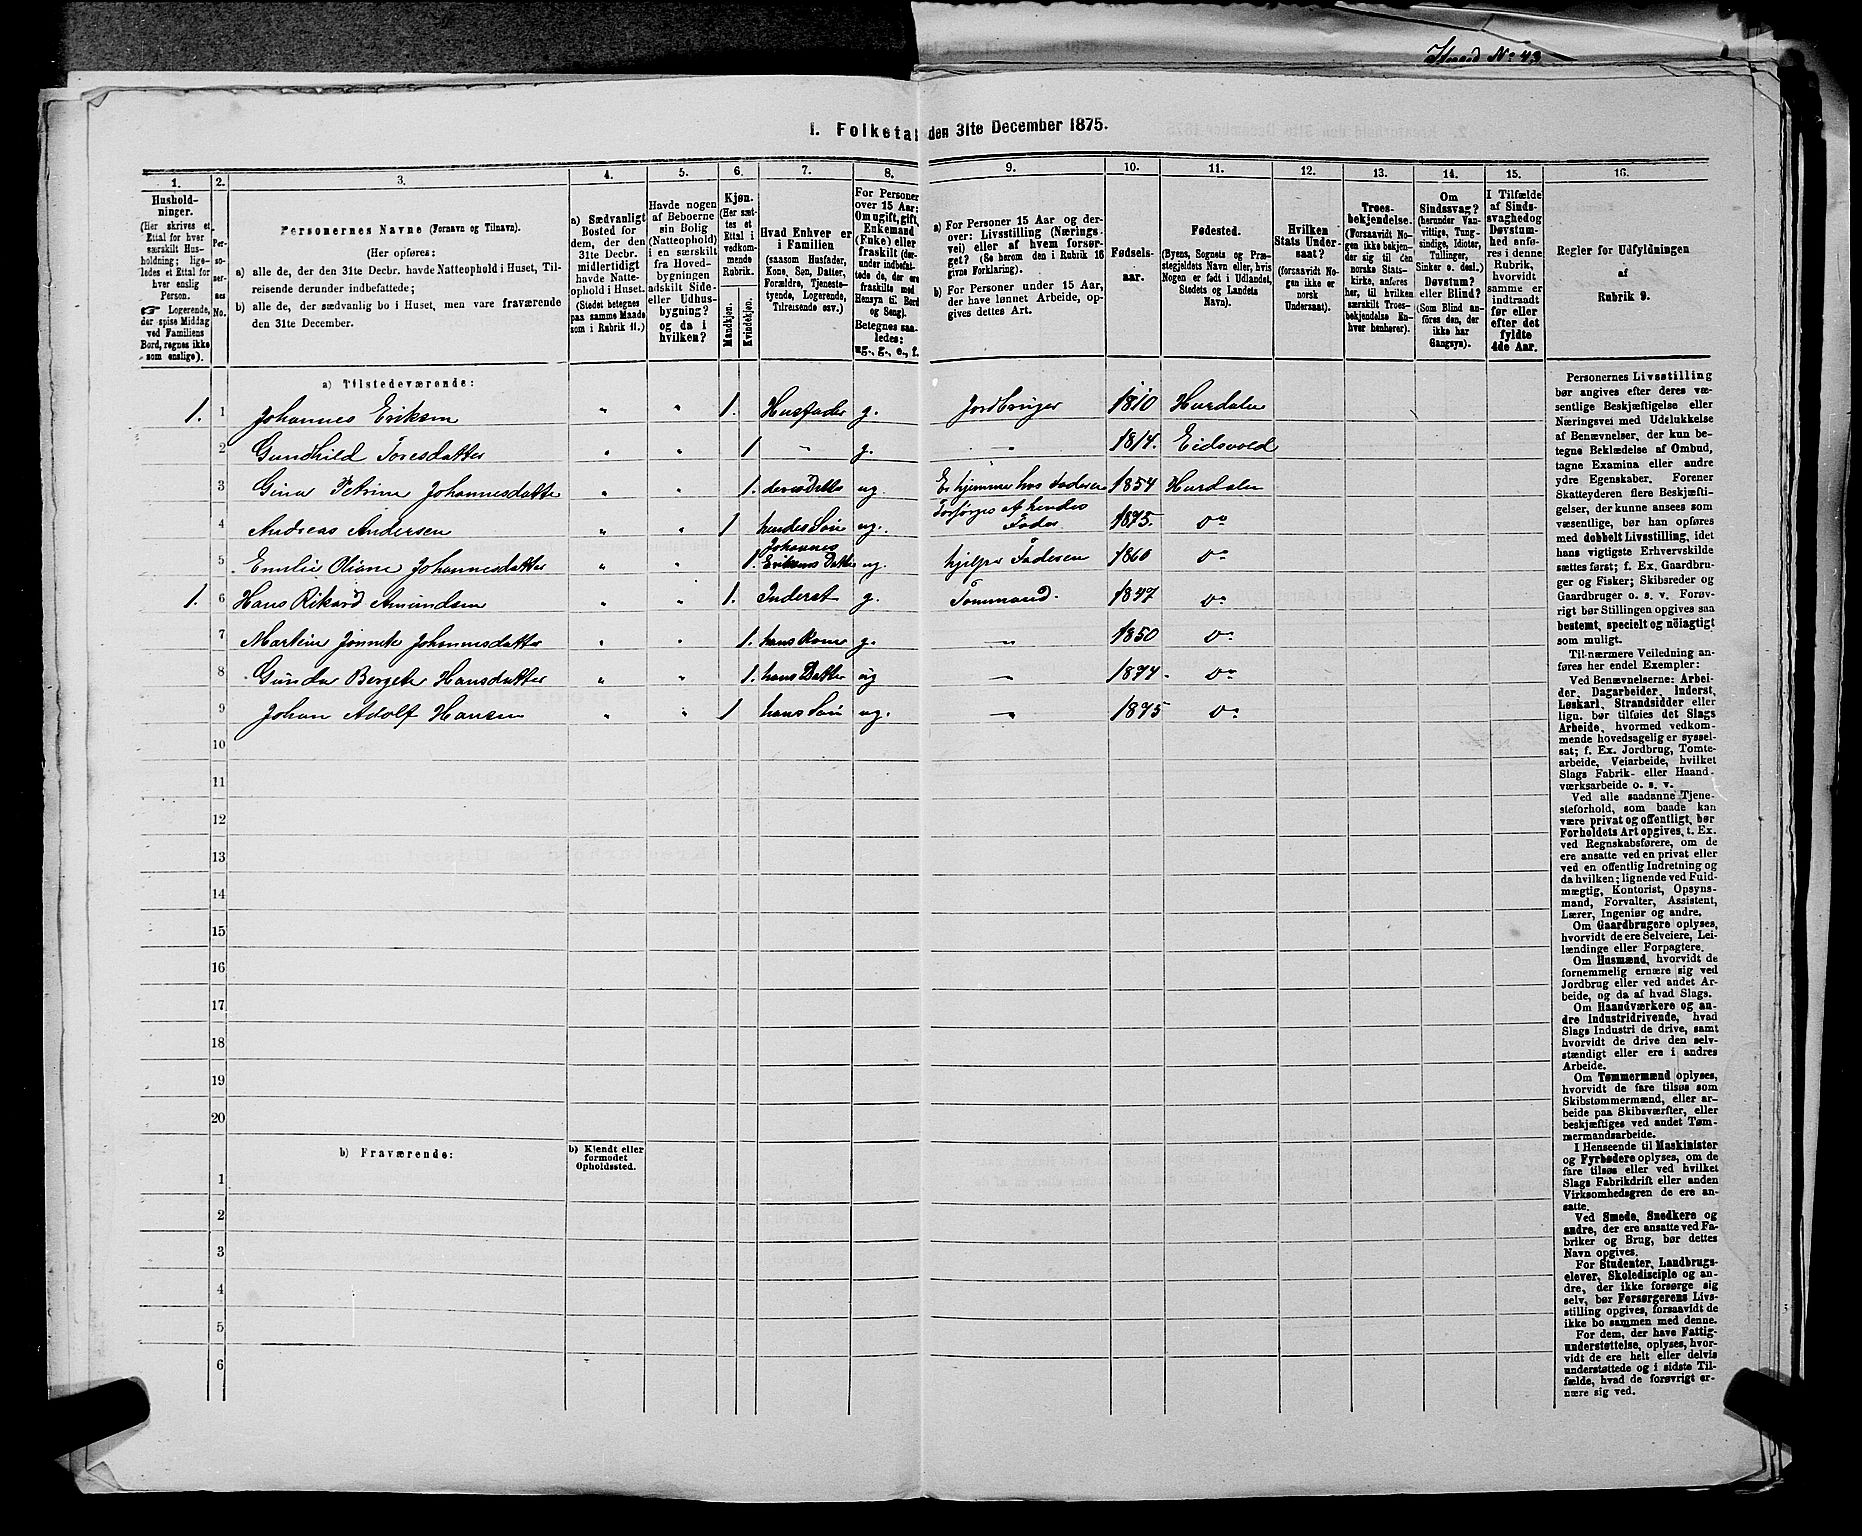 Huusd No 43
1. Folketal den 31te December 1875.
1. 2. 3. 4. 5. 6. 7. 8. 9. 10. 11. 12. 13. 14. 15. 16.
Husholdninger.
(Her skrives et
Ettal for hver
særskilt Husholdning;
ligeledes et Ettal for
hver enslig
Person.
☞ Logerende,
der spise Middag
ved Familiens
Bord, regnes ikke
som enslige).
Personernes No.
Personernes Navne (Fornavn og Tilnavn).
(Her opføres:
a) alle de, der den 31te Decbr. havde Natteophold i Huset, Tilreisende derunder indbefattede;
b) alle de, der sædvanlig bo i Huset, men vare fraværende
den 31te December.
a) Sædvanligt
Bosted for
dem, der den
31te Decbr.
midlertidigt
havde Natteophold i Huset.
(Stedet betegnes
paa samme Maade
som i Rubrik 11.)
Havde nogen
af Beboerne
sin Bolig
(Natteophold)
i en særskilt
fra Hovedbygningen
adskilt Side-
eller Udhusbygning?
og da i
hvilken?
Kjøn.
(Her sættes et
Ettal i
vedkommende
Rubrik.
Mandkjøn.
Kvindekjøn.
Hvad Enhver er
i Familien
(saasom Husfader,
Kone, Søn, Datter,
Forældre, Tjenestetyende, Logerende,
Tilreisende osv.)
For Personer
over 15 Aar:
Om ugift, gift,
Enkemand
(Enke) eller
fraskilt (derunder indbefattede de, der ere
fraskilte med
Hensyn til Bord
og Seng).
Betegnes saaledes:
ug., g., e., f.
a) For Personer 15 Aar og derover: Livsstilling (Næringsvei) eller af hvem forsørget? (Se herom den i Rubrik 16
givne Forklaring).
b) For Personer under 15 Aar,
der have lønnet Arbeide, opgives dettes Art.
Fødselsaar.
Fødested.
(Byens, Sognets og Præstegjeldets Navn eller, hvis
Nogen er født i Udlandet,
Stedets og Landets
Navn).
Hvilken
Stats Undersaat?
(forsaavidt Nogen ikke er
norsk
Undersaat).
Troesbekjendelse.
(Forsaavidt Nogen ikke bekjender sig til den
norske Statskirke, anføres
her, til hvilken
særskilt Troesbekjendelse Enhver henhører).
Om
Sindssvag?
(herunder Vanvittige, Tungsindige, Idioter,
Tullinger,
Sinker o. desl.)
Døvstum?
eller Blind?
(Som Blind anføres den, der
ikke har
Gangsyn).
I Tilfælde
af Sindssvaghed og
Døvstumhed anføres i denne
Rubrik,
hvorvidt
samme er
indtraadt
før eller
efter det
fyldte
4de Aar.
Regler for Udfyldningen
af
Rubrik 9.
a) Tilstedeværende:
1. 1 Johannes Eriksen " " 1. Husfader g. Jordbruger 1810 Hurdalen
2 Gundhild Toresdatter " " 1 " g. " 1814. Eidsvold
3 Gina Petrine Johannesdatter " " 1. deres Datter ug Er hjemme hos Faderen 1854 Hurdalen
4 Andreas Andersen " " 1 hendes Søn ug. Forsørges af hendes Fader 1875. Do
5 Emilie Oliane Johannesdatter " " 1. Johannes Eriksens Datter ug. hjelper Faderen 1860 Do
1. 6 Hans Rikard Amundsen " " 1. Inderst g. Tømmand. 1847 Do
7 Martine Jonnete Johannesdatter " " 1. hans Kone g. " 1850 Do
8 Gunda Bergete Hansdatter " " 1. hans Datter ug " 1874. Do
9 Johan Adolf Hansen " " 1 hans Søn ug. " 1875 Do
10
11
12
13
14
15
16
17
18
19
20
b) Fraværende:
b) Kjendt eller
formodet
Opholdssted.
1
2
3
4
5
6
Personernes Livsstilling
bør angives efter deres væsentlige Beskjæftigelse eller
Næringsvei med Udelukkelse
af Benævnelser, der kun betegne Beklædelse af Ombud,
tagne Examina eller andre
ydre Egenskaber. Forener
Skatteyderen flere Beskjæftigelser, der kunne ansees som
væsentlige, bør han opføres
med dobbelt Livsstilling, idet
hans vigtigste Erhvervskilde
sættes først; f. Ex. Gaardbruger og Fisker; Skibsreder og
Gaardbruger o. s. v. Forøvrigt bør Stillingen opgives saa
bestemt, specielt og nöiagtigt
som muligt.
Til nærmere Veiledning anføres her endel Exempler:
Ved Benævnelserne: Arbeider, Dagarbeider, Inderst,
Løskarl, Strandsidder eller
lign. bør tilføies det Slags
Arbeide, hvormed vedkommende hovedsagelig er sysselsat; f. Ex. Jordbrug, Tomtearbeide, Veiarbeide, hvilket
Slags Fabrik- eller Haandværksarbeide o. s. v.
Ved alle saadanne Tjenesteforhold, som baade kan
være privat og offentligt, bør
Forholdets Art opgives, t. Ex.
ved Regnskabsførere, om de
ere ansatte ved en privat eller
ved en offentlig Indretning og
da hvilken; lignende ved Fuldmægtig, Kontorist, Opsynsmand, Forvalter, Assistent,
Lærer, Ingeniør og andre.
Om Gaardbrugere oplyses,
hvorvidt de ere Selveiere, Leilændinge eller Forpagtere.
Om Husmænd, hvorvidt de
fornemmelig ernære sig ved
Jordbrug eller ved andet Arbeide, og da af hvad Slags.
Om Haandværkere og andre Industridrivende, hvad
Slags Industri de drive, samt
hvorvidt de drive den selvstændigt eller ere i andres
Arbeide.
Om Tømmermænd oplyses,
hvorvidt de fare tilsøs som
Skibstømmermænd, eller arbeide paa Skibsværfter, eller
beskjæftiges ved andet Tømmermandsarbeide.
I Henseende til Maskinister
og Fyrbødere oplyses, om de
fare tilsøs eller ved hvilket
Slags Fabrikdrift eller anden
Virksomhedsgren de ere ansatte.
Ved Smede, Snedkere og
andre, der ere ansatte ved Fabriker og Brug, bør dettes
Navn opgives.
For Studenter, Landbrugselever, Skoledisciple og andre, der ikke forsørge sig
selv, bør Forsørgerens Livsstilling opgives, forsaavidt de
ikke bo sammen med denne.
For dem, der have Fattigunderstøttelse, oplyses, hvorvidt de ere helt eller delvis
understøttede og i sidste Tilfælde, hvad de forøvrigt ernære sig ved.